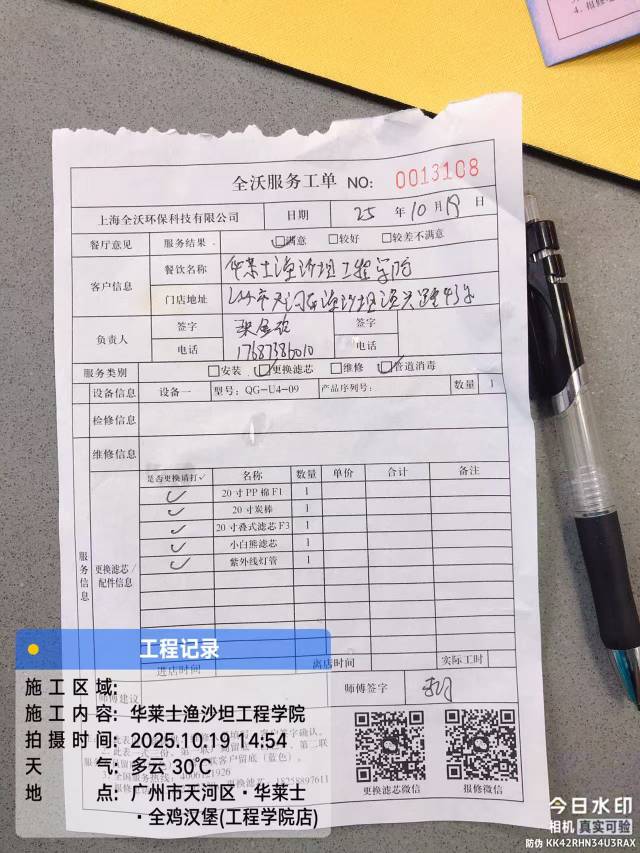 4. 报修
全沃服务工单 NO: 0013108
上海全沃环保科技有限公司 日期 25 年 10 月 19 日
餐厅意见 服务结果 满意 较好 较差不满意
客户信息 餐饮名称 华莱士渔沙坦工程学院
门店地址 广州市天河区渔沙坦渔兴路43号
负责人 签字 签字
电话 17687386010 电话
服务类别 安装 更换滤芯 维修 管道消毒
设备信息 设备一 型号: QG-U4-09 产品序列号: 数量 1
检修信息
维修信息
服务信息
更换滤芯/配件信息
是否更换请打✓ 名称 数量 单价 合计 备注
✓ 20寸PP棉F1 1
✓ 20寸炭棒 1
✓ 20寸叠式滤芯F3 1
✓ 小白熊滤芯 1
✓ 紫外线灯管 1
进店时间 离店时间 实际工时
师傅建议 师傅签字
更换滤芯微信 报修微信
工程记录
施工区域:
施工内容: 华莱士渔沙坦工程学院
拍摄时间: 2025.10.19 14:54
天气: 多云 30℃
地点: 广州市天河区·华莱士
·全鸡汉堡(工程学院店)
今日水印
相机 真实可验
防伪 KK42RHN34U3RAX